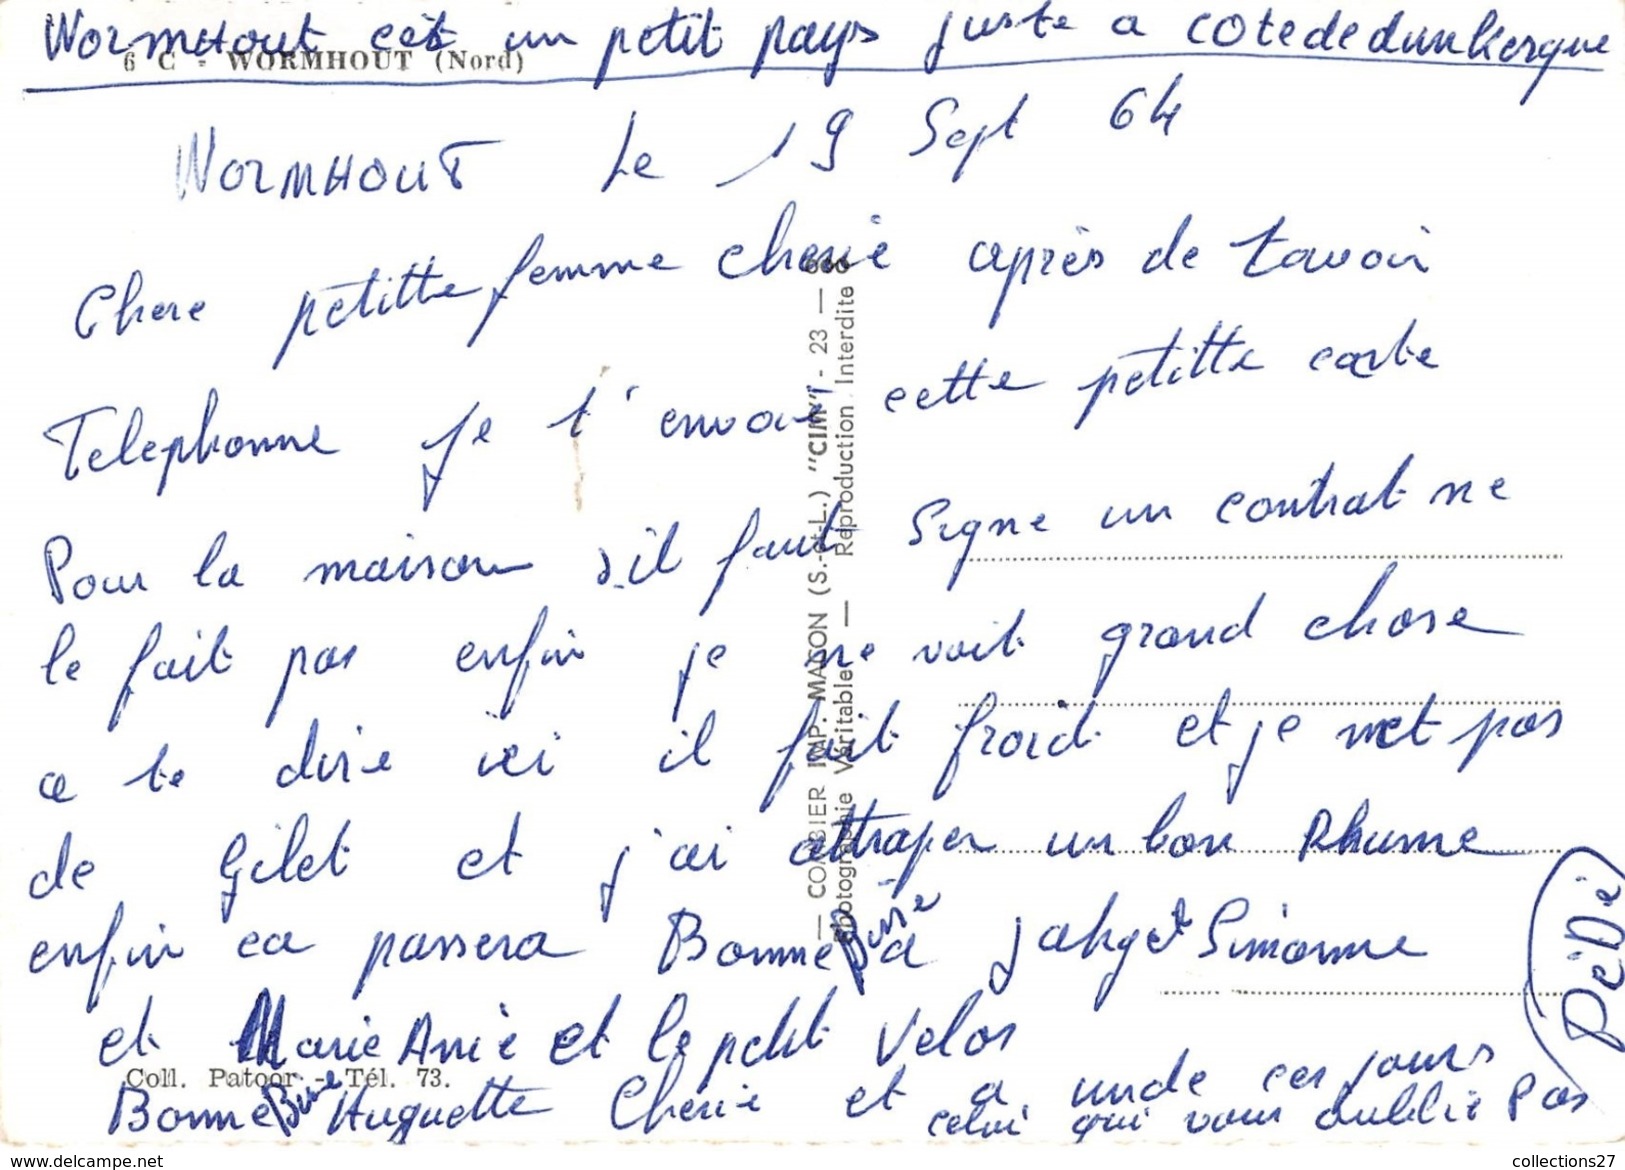 Wormhout est un petit pays juste a cotededunkerque
6 C - WORMHOUT (Nord)
WORMHOUT Le 19 Sept 64
Chere petitte femme cherie après de tavoir
Telephonne je t'envoie cette petitte carte
Pour la maison s'il faut signe un contrat ne
le fait pas enfin je ne voit grand chose
a te dire ici il fait froid et je met pas
de Gilet et j'ai attraper un bon Rhume
enfin ca passera Bonne Bise a et Simonne
et Marie Anie et le petit Velos
Bonne Bise Huguette Cherie et a unde ces jours
celui qui vous oublie Pas
PéDé
— COMBIER IMP. MACON (S.-et-L.) "CIM" - 23 —
Photographie Véritable — Reproduction Interdite
Coll. Patoor - Tél. 73.
www.delcampe.net
collections27